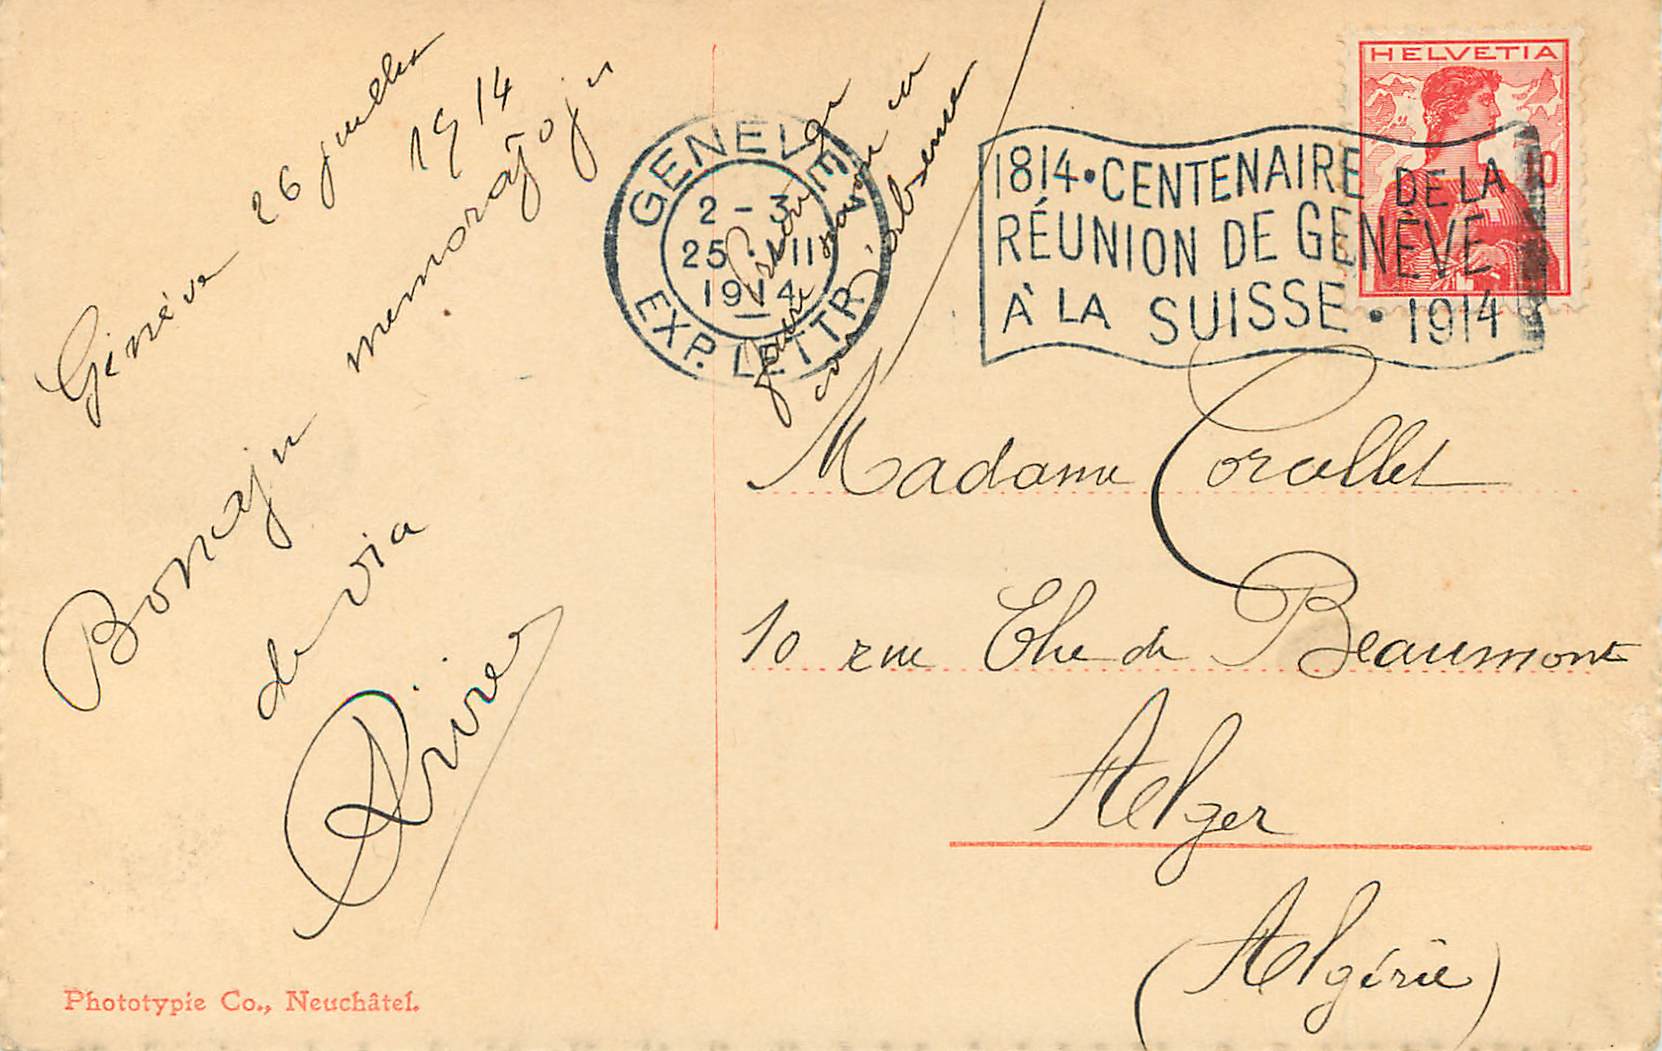 Genève 26 juillet
1914
Bonajn memorajojn
de via
Rivier
GENEVE 1
2-3
25 VII
1914
EXP. LETTR.
pour mon
absence
1814 • CENTENAIRE DE LA
RÉUNION DE GENÈVE
À LA SUISSE • 1914
HELVETIA
10
Madame Corallet
10 rue Elie de Beaumont
Alger
(Algérie)
Phototypie Co., Neuchâtel.